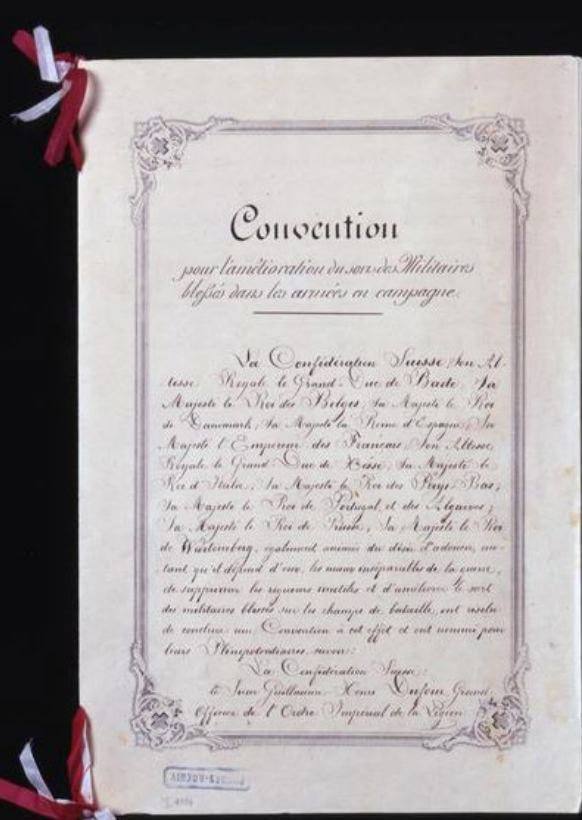 Convention
pour l'amélioration du sort des Militaires
blessés dans les armées en campagne.
La Confédération Suisse, Son Al-
tesse Royale le Grand-Duc de Bade, Sa
Majesté le Roi des Belges, Sa Majesté le Roi
de Danemark, Sa Majesté la Reine d'Espagne, Sa
Majesté l'Empereur des Français, Son Altesse
Royale le Grand-Duc de Hesse, Sa Majesté le
Roi d'Italie, Sa Majesté le Roi des Pays-Bas,
Sa Majesté le Roi de Portugal et des Algarves,
Sa Majesté le Roi de Prusse, Sa Majesté le Roi
de Wurtemberg, également animés du désir d'adoucir, au-
tant qu'il dépend d'eux, les maux inséparables de la guerre,
de supprimer les rigueurs inutiles et d'améliorer le sort
des militaires blessés sur les champs de bataille, ont résolu
de conclure une Convention à cet effet et ont nommé pour
leurs Plénipotentiaires, savoir:
La Confédération Suisse:
le Sieur Guillaume Henri Dufour, Grand
Officier de l'Ordre Impérial de la Légion